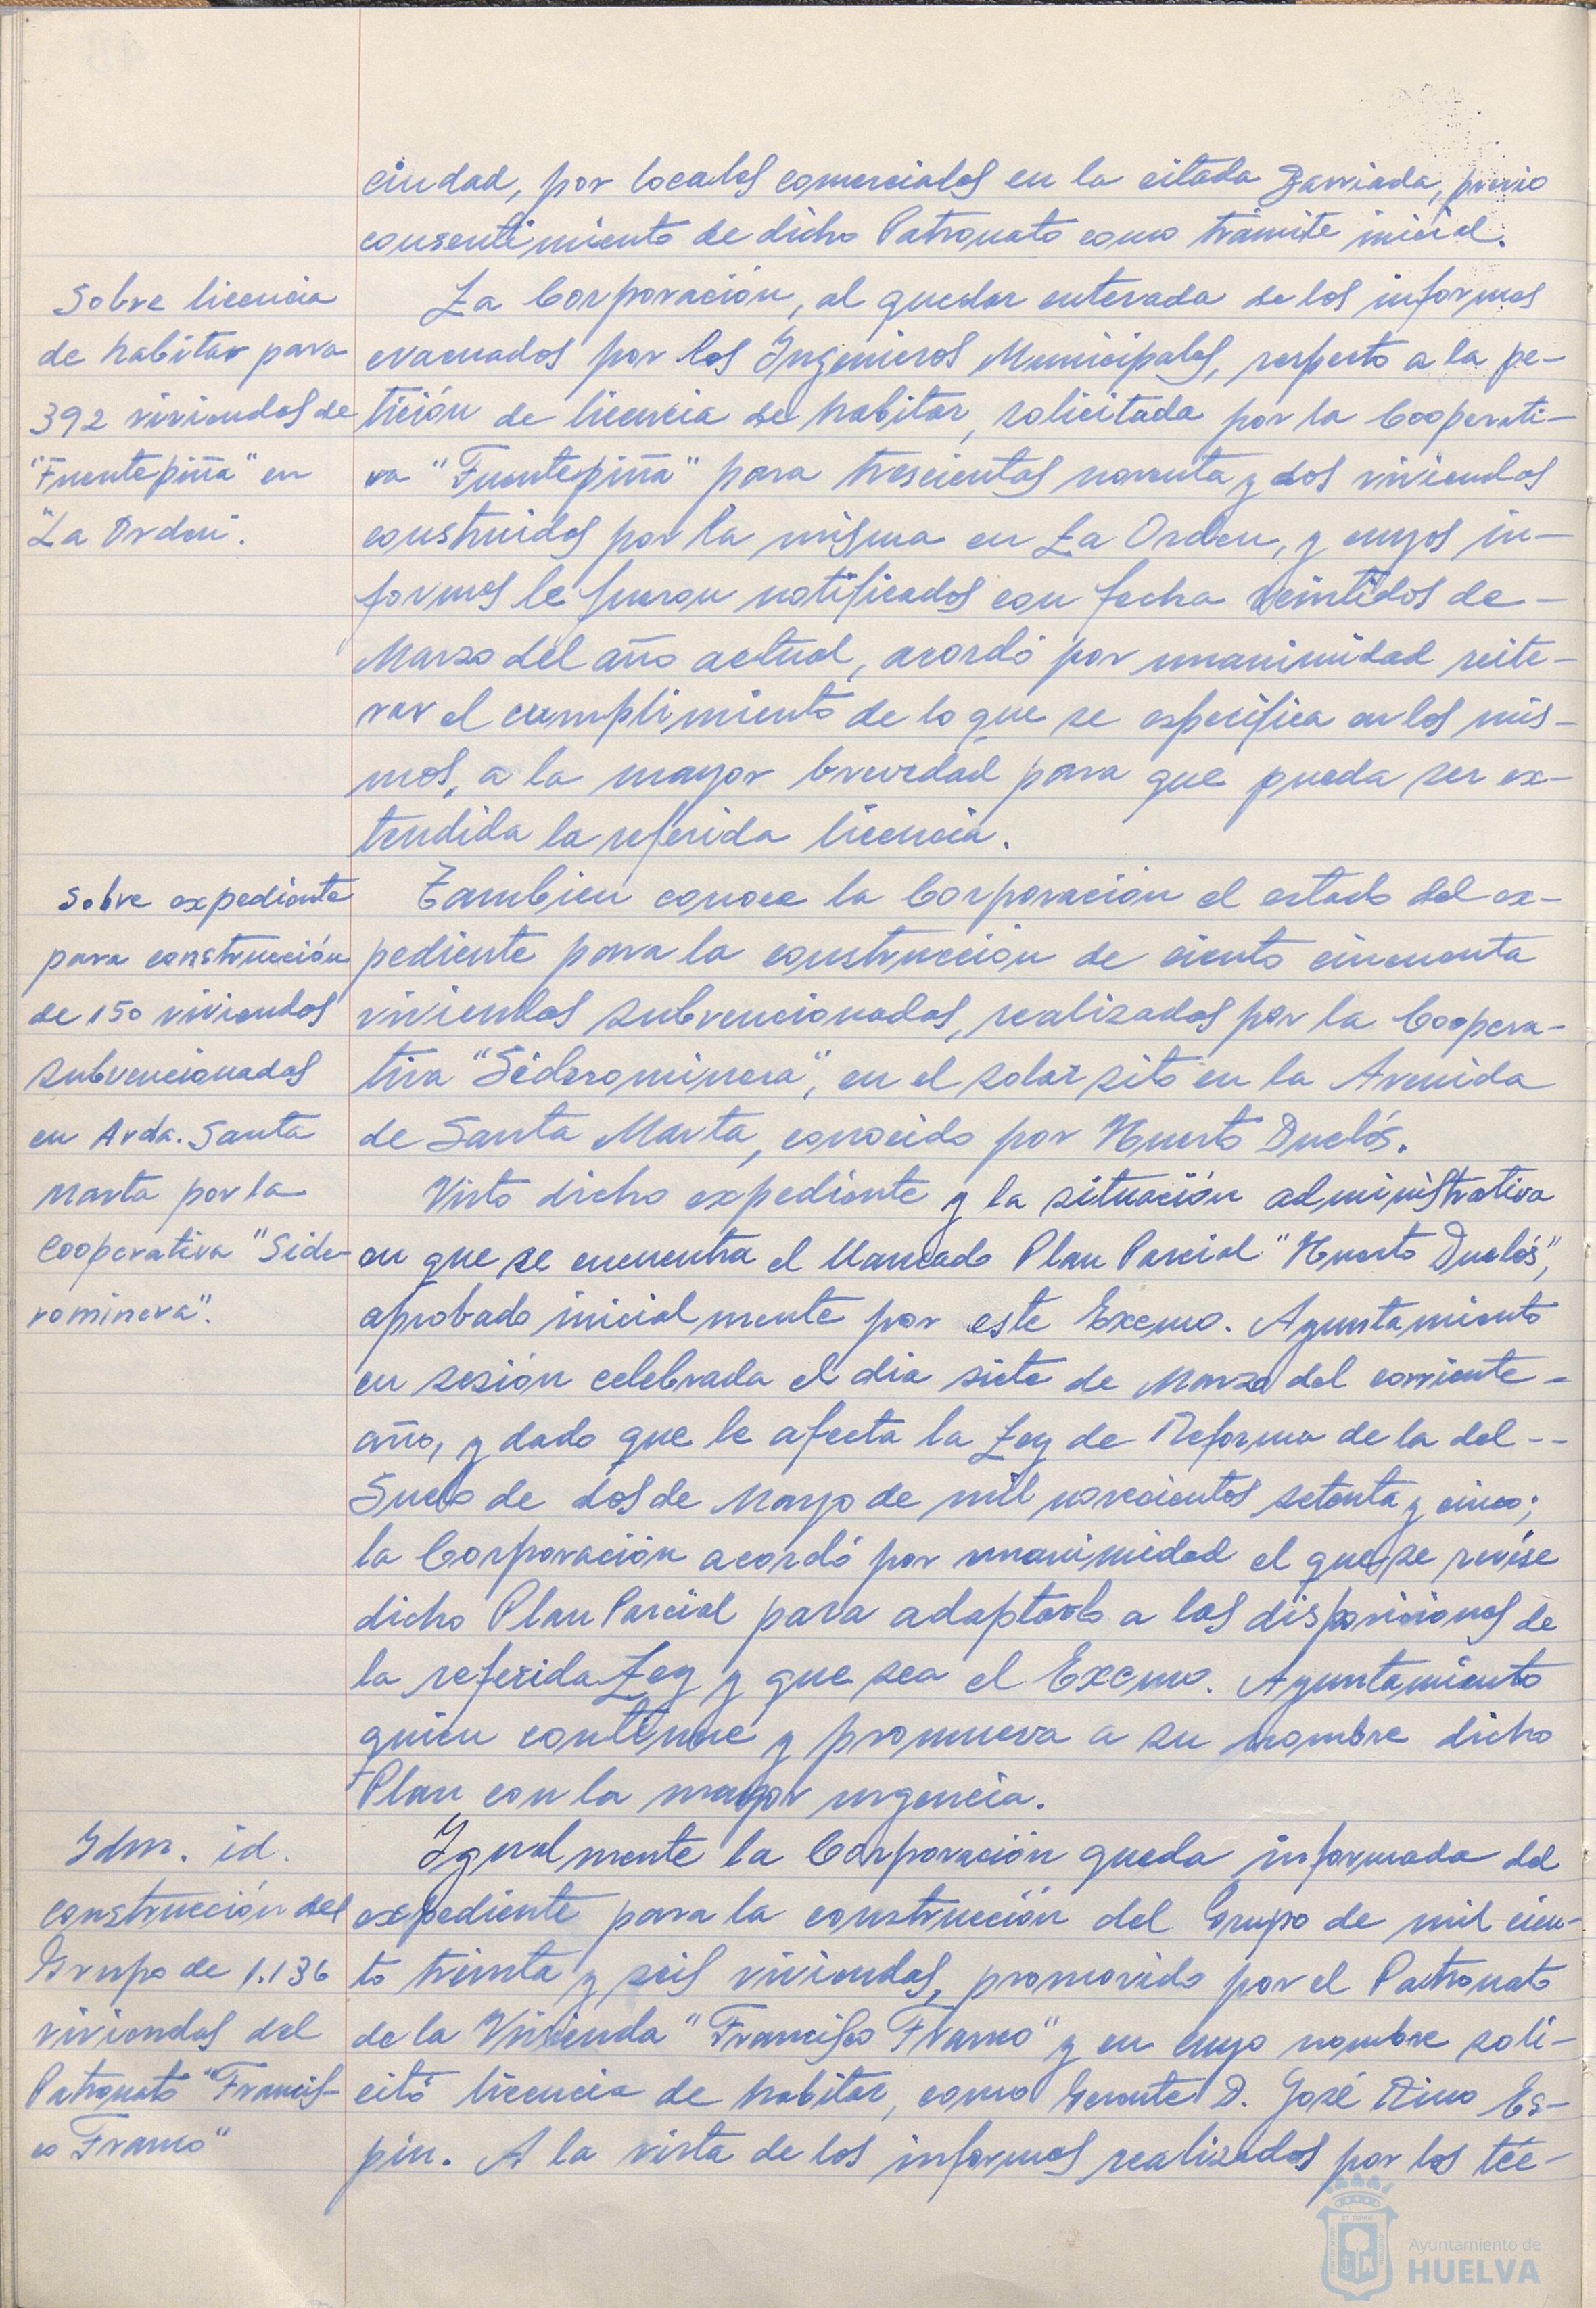 ciudad, por locales comerciales en la citada Barriada, previo
consentimiento de dicho Patronato como trámite inicial.
Sobre licencia
de habitar para
392 viviendas de
"Fuentepiña" en
"La Orden".
La Corporación, al quedar enterada de los informes
evacuados por los Ingenieros Municipales, respecto a la pe-
tición de licencia de habitar, solicitada por la Cooperati-
va "Fuentepiña" para trescientas noventa y dos viviendas
construidas por la misma en La Orden, y cuyos in-
formes le fueron notificados con fecha veintidos de-
Marzo del año actual, acordó por unanimidad reite-
rar el cumplimiento de lo que se especifica en los mis-
mos, a la mayor brevedad para que pueda ser ex-
tendida la referida licencia.
Sobre expediente
para construcción
de 150 viviendas
subvencionadas
en Avda. Santa
Marta por la
Cooperativa "Side-
rominera".
Tambien conoce la Corporación el estado del ex-
pediente para la construcción de ciento cincuenta
viviendas subvencionadas, realizadas por la Coopera-
tiva "Siderominera", en el solar sito en la Avenida
de Santa Marta, conocido por Huerto Duclós.
Visto dicho expediente y la situación administrativa
en que se encuentra el llamado Plan Parcial "Huerto Duclós",
aprobado inicialmente por este Excmo. Ayuntamiento
en sesión celebrada el dia siete de Marzo del corriente-
año, y dado que le afecta la Ley de Reforma de la del--
Suelo de dos de Mayo de mil novecientos setenta y cinco;
la Corporación acordó por unanimidad el que se revise
dicho Plan Parcial para adaptarlo a las disposiciones de
la referida Ley y que sea el Excmo. Ayuntamiento
quien continue y promueva a su nombre dicho
Plan con la mayor urgencia.
Idm. id.
construcción del
Grupo de 1.136
viviendas del
Patronato "Francis-
co Franco"
Igualmente la Corporación queda informada del
expediente para la construcción del Grupo de mil cien-
to treinta y seis viviendas, promovido por el Patronato
de la Vivienda "Francisco Franco" y en cuyo nombre soli-
citó licencia de habitar, como Gerente D. José Es-
pin. A la vista de los informes realizados por los téc-
Ayuntamiento de
HUELVA